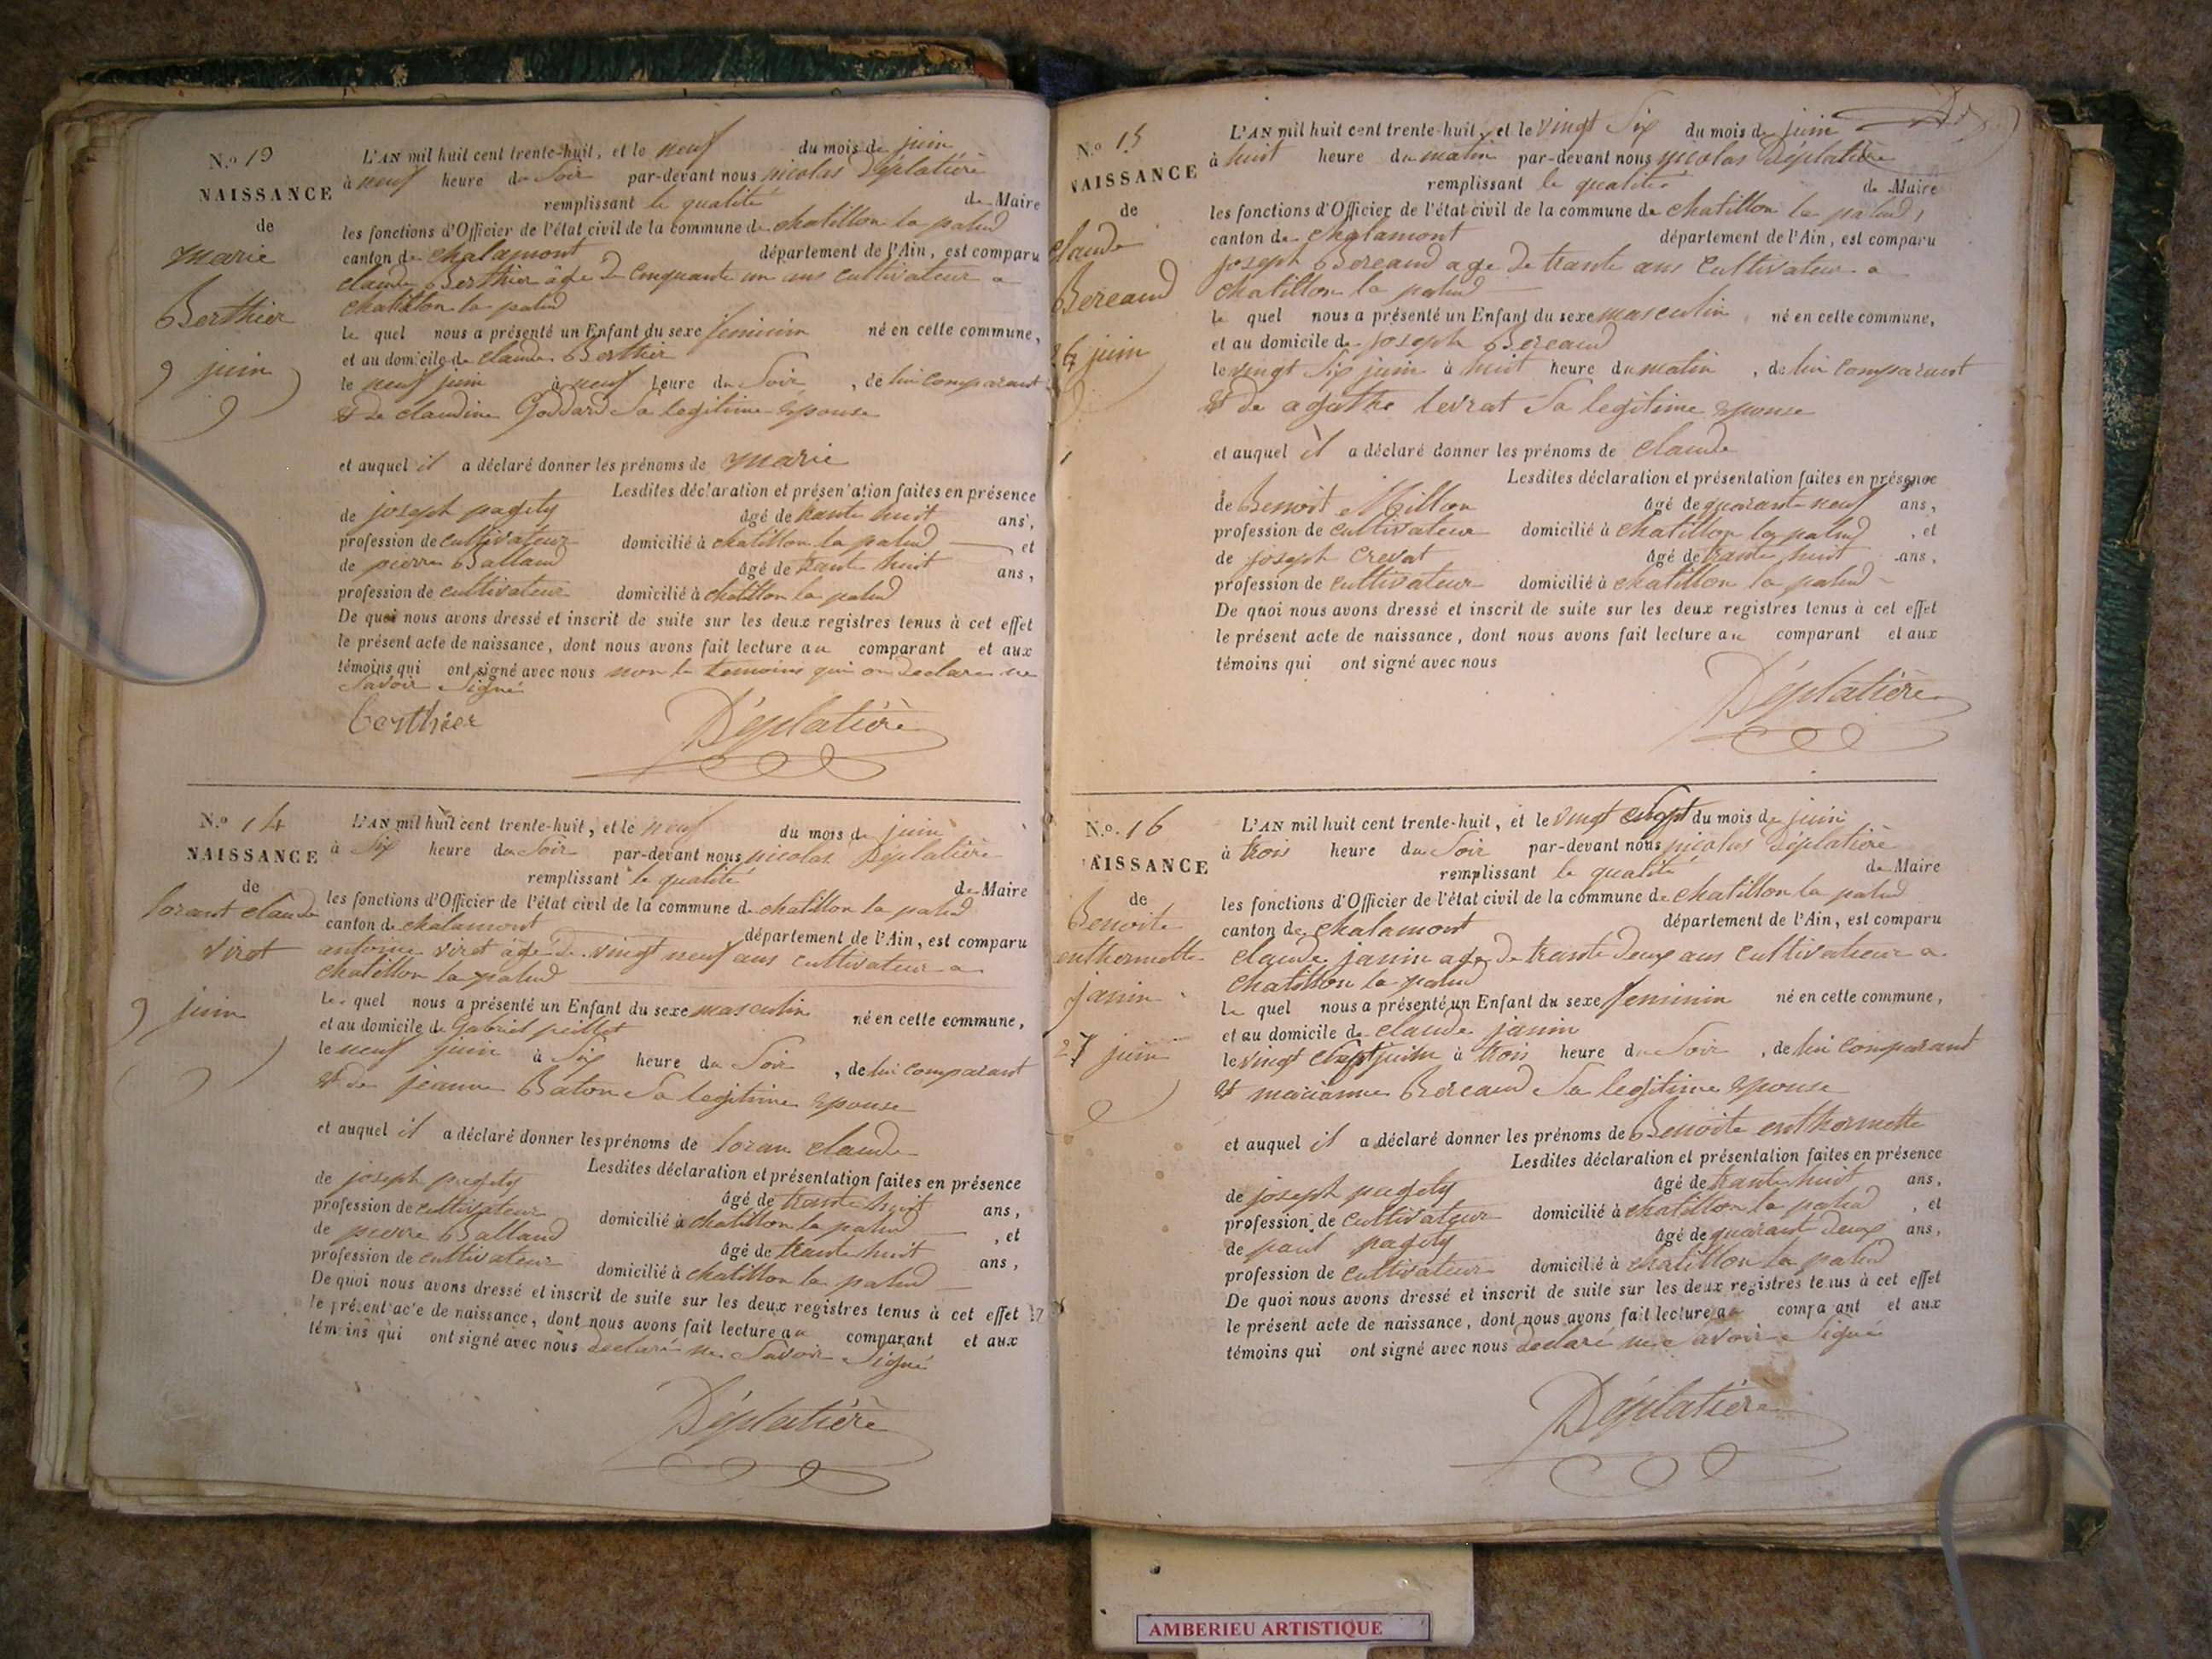 N.o 13
NAISSANCE
de
marie
Berthier
9 juin
L'AN mil huit cent trente-huit, et le neuf du mois de juin
à neuf heure du Soir par-devant nous nicolas Déplatière
remplissant le qualité de Maire
les fonctions d'Officier de l'état civil de la commune de chatillon la palud
canton de chalamont département de l'Ain, est comparu
claude Berthier âge de Cinquante un ans cultivateur a
chatillon la palud
le quel nous a présenté un Enfant du sexe feminin né en cette commune,
et au domicile de claude Berthier
le neuf juin à neuf heure du Soir, de lui comparant
& de claudine Goddard Sa legitime epouse
et auquel il a déclaré donner les prénoms de marie
Lesdites déclaration et présentation faites en présence
de joseph pagety âgé de trante huit ans,
profession de cultivateur domicilié à chatillon la palud et
de pierre Balland âgé de trante huit ans,
profession de cultivateur domicilié à chatillon la palud
De quoi nous avons dressé et inscrit de suite sur les deux registres tenus à cet effet
le présent acte de naissance, dont nous avons fait lecture au comparant et aux
témoins qui ont signé avec nous non le temoins qui on declare ne
Savoir Signé
berthier Déplatière
N.o 14
NAISSANCE
de
lorant claude
virot
9 juin
L'AN mil huit cent trente-huit, et le neuf du mois de juin
à Six heure du Soir par-devant nous nicolas Déplatière
remplissant le qualité de Maire
les fonctions d'Officier de l'état civil de la commune de chatillon la palud
canton de chalamont département de l'Ain, est comparu
antoine virot âge de vingt neuf ans cultivateur a
chatillon la palud
le quel nous a présenté un Enfant du sexe masculin né en cette commune,
et au domicile de Gabriel peillet
le neuf juin à Six heure du Soir, de lui comparant
& de jeanne Baton Sa legitime epouse
et auquel il a déclaré donner les prénoms de loran claude
Lesdites déclaration et présentation faites en présence
de joseph pagety âgé de trante huit ans,
profession de cultivateur domicilié à chatillon la palud, et
de pierre Balland âgé de trante huit ans,
profession de cultivateur domicilié à chatillon la palud
De quoi nous avons dressé et inscrit de suite sur les deux registres tenus à cet effet
le présent acte de naissance, dont nous avons fait lecture au comparant et aux
témoins qui ont signé avec nous declaré ne Savoir Signé
Déplatière
N.o 15
NAISSANCE
de
claude
Bereaud
26 juin
L'AN mil huit cent trente-huit, et le vingt Six du mois de juin
à huit heure du matin par-devant nous nicolas Déplatière
remplissant le qualité de Maire
les fonctions d'Officier de l'état civil de la commune de chatillon la palud,
canton de chalamont département de l'Ain, est comparu
joseph Bereaud age de trante ans cultivateur a
chatillon la palud
le quel nous a présenté un Enfant du sexe masculin né en cette commune,
et au domicile de joseph Bereaud
le vingt Six juin à huit heure du matin, de lui comparant
& de agathe levrat Sa legitime epouse
et auquel il a déclaré donner les prénoms de claude
Lesdites déclaration et présentation faites en présence
de Benoit Millon âgé de quarante neuf ans,
profession de cultivateur domicilié à chatillon la palud, et
de joseph Crevat âgé de trante huit ans,
profession de cultivateur domicilié à chatillon la palud
De quoi nous avons dressé et inscrit de suite sur les deux registres tenus à cet effet
le présent acte de naissance, dont nous avons fait lecture au comparant et aux
témoins qui ont signé avec nous
Déplatière
N.o 16
NAISSANCE
de
Benoite
enthermette
janin
27 juin
L'AN mil huit cent trente-huit, et le vingt du mois de juin
à trois heure du Soir par-devant nous nicolas Déplatière
remplissant le qualité de Maire
les fonctions d'Officier de l'état civil de la commune de chatillon la palud
canton de chalamont département de l'Ain, est comparu
claude janin age de trante deux ans cultivateur a
chatillon la palud
le quel nous a présenté un Enfant du sexe feminin né en cette commune,
et au domicile de claude janin
le vingt juin à trois heure du Soir, de lui comparant
& marianne Bereaud Sa legitime epouse
et auquel il a déclaré donner les prénoms de Benoite enthermette
Lesdites déclaration et présentation faites en présence
de joseph pagety âgé de trante huit ans,
profession de cultivateur domicilié à chatillon la palud, et
de paul pagety âgé de quarant deux ans,
profession de cultivateur domicilié à chatillon la palud
De quoi nous avons dressé et inscrit de suite sur les deux registres tenus à cet effet
le présent acte de naissance, dont nous avons fait lecture au comparant et aux
témoins qui ont signé avec nous declaré ne Savoir Signé
Déplatière
AMBERIEU ARTISTIQUE